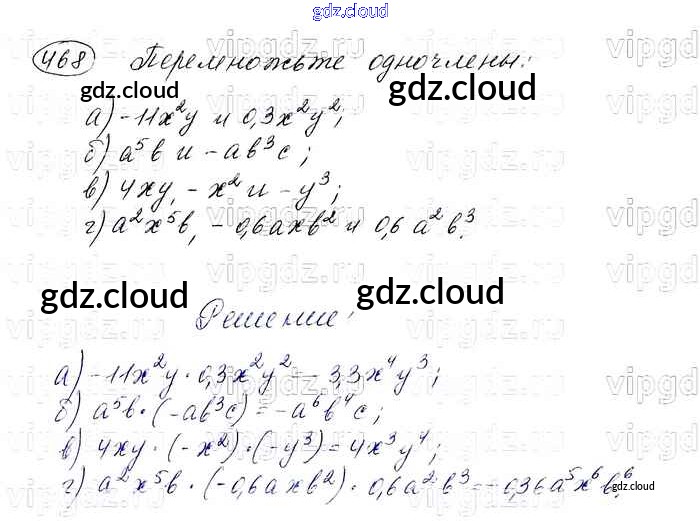 gdz.cloud
468 Перемножьте одночлены:
gdz.cloud gdz.cloud
а) -11x²y и 0,3x²y²;
б) a⁵b и -ab³c;
в) 4xy, -x² и -y³;
г) a²x⁵b, -0,6axb² и 0,6a²b³.
gdz.cloud gdz.cloud
Решение:
а) -11x²y · 0,3x²y² = -3,3x⁴y³;
б) a⁵b · (-ab³c) = -a⁶b⁴c;
в) 4xy · (-x²) · (-y³) = 4x³y⁴;
г) a²x⁵b · (-0,6axb²) · 0,6a²b³ = -0,36a⁵x⁶b⁶.
gdz.cloud